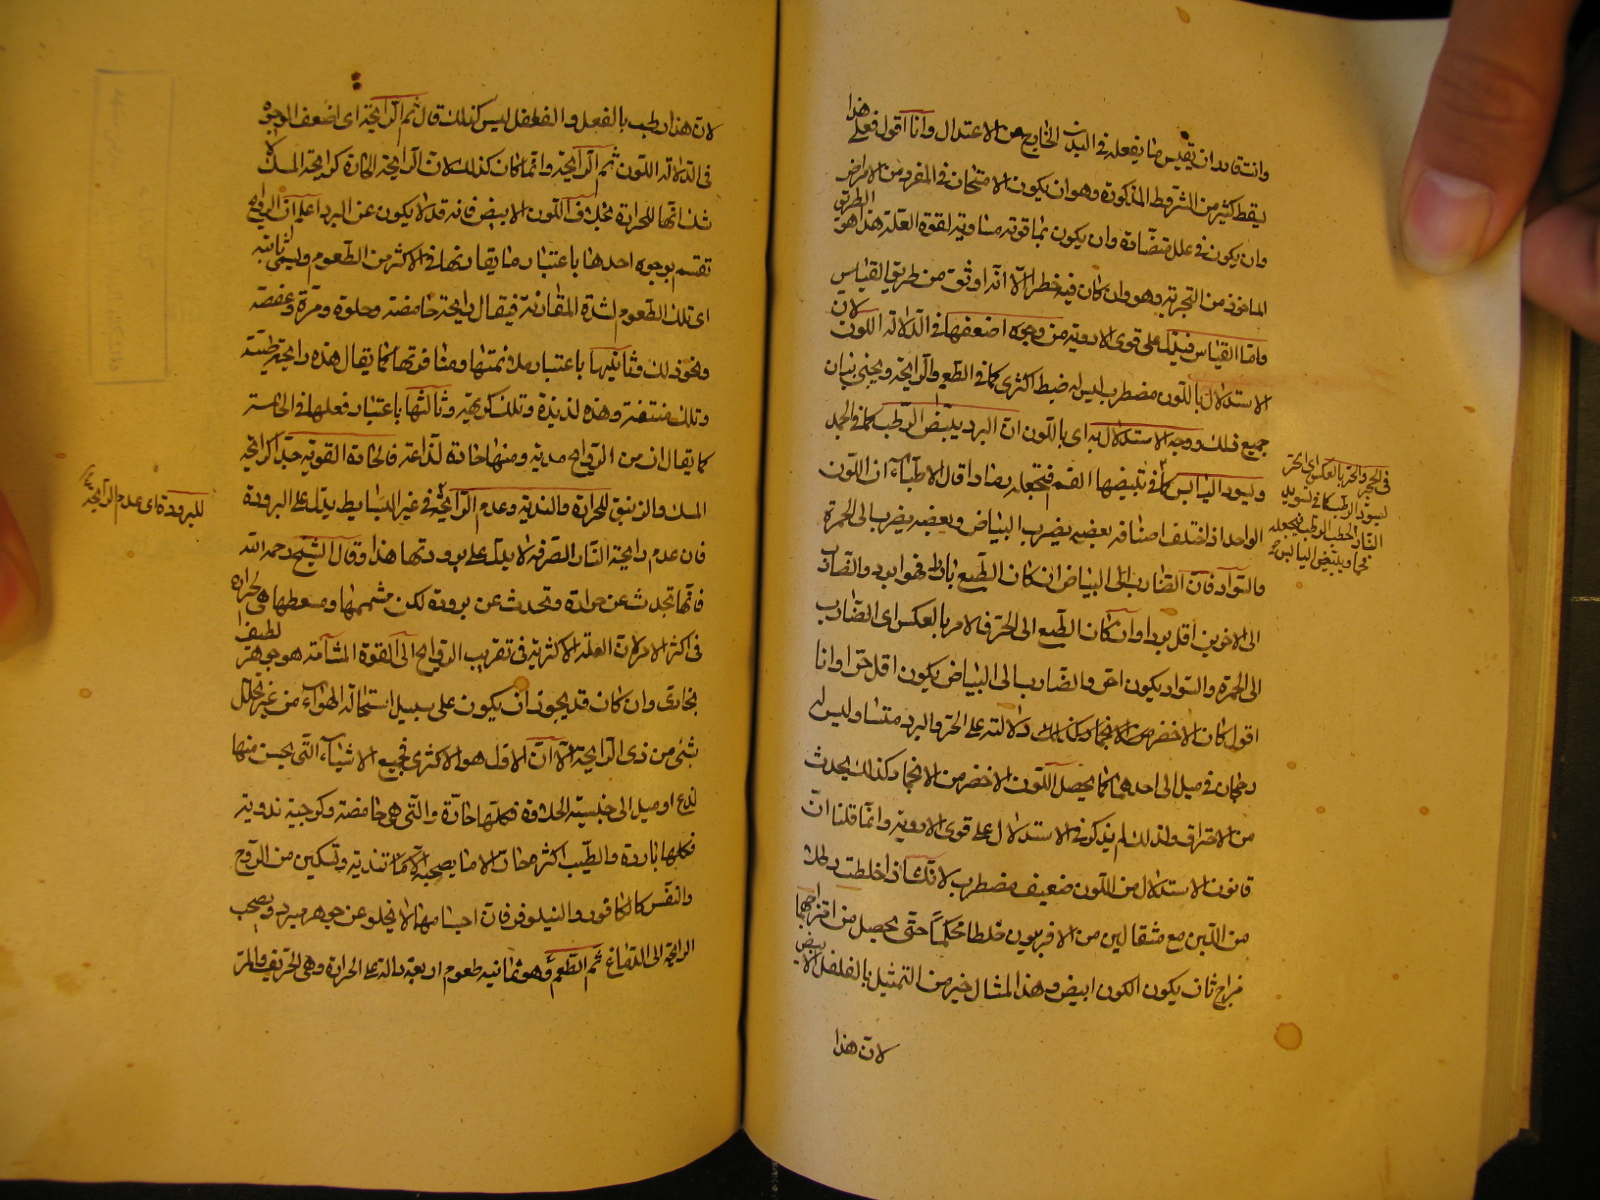 وانت قادر ان تقيس ما يفعله فى البدن الخارج عن الاعتدال وانا اقول فعلى هذا
يسقط كثير من الشروط المذكورة وهو ان يكون الامتحان فى المفرد من الامراض
وان يكون فى علل متضادة وان يكون مما قوته مساوية لقوة العلة هذا هو الطريق
الماخوذ من التجربة وهو وان كان فيه خطر الا انه اوثق من طريق القياس
واما القياس فيدل على قوى الادوية من وجوه اضعفها فى الدلالة اللون لان
الاستدلال باللون مضطرب ليس له ضبط اكثرى كما فى الطعم والرايحة ويجئ بيان
جميع ذلك ووجه الاستدلال به اى باللون ان البرد يبيض الرطب كما فى الجمد
ويسود اليابس كما فى تبييضها الفحم فتجعله رمادا قال الاطباء ان اللون
الواحد اذا اختلف اصنافه بعضه يضرب الى البياض وبعضه يضرب الى الحمرة
والسواد فان الضارب الى البياض ان كان الطبع باردا فهو ابرد والضارب
الى الاخرين اقل بردا وان كان الطبع الى الحر فالامر بالعكس اى الضارب
الى الحمرة والسواد يكون احر والضارب الى البياض يكون اقل حرا وانا
اقول كان الاخضر دلالته على الحر والبرد متساو ليس له
رجحان فى ميل الى احدهما كما يحصل اللون الاخضر من الانجماد كذلك يحدث
من الاحتراق ولذلك لم يذكر فى الاستدلال على قوى الادوية وانما قلنا ان
قانون الاستدلال من اللون ضعيف مضطرب لانك اذا خلطت رطلا
من اللبن مع مثقالين من الافربيون خلطا محكما حتى يحصل من امتزاجهما
مزاج ثان يكون اللون ابيض وهذا المثال خير من التمثيل بالفلفل الابيض
لان هذا
فى الحجر والحر بالعكس اى الحر
يسود الرطب كما فى تسويد
النار الحطب الرطب فيجعله
فحما ويبيض اليابس
لان هذا رطب بالفعل والفلفل ليس كذلك قال ثم الرايحة اى اضعف الوجوه
فى الدلالة اللون ثم الرايحة وانما كان كذلك لان الرايحة الحادة كرايحة المسك لا
شك انها للحرارة بخلاف اللون الابيض فانه قد لا يكون عن البرد اعلم ان الروايح
تقسم بوجوه احدها باعتبار ما يقارنها فى الاكثر من الطعوم ويسمى ثانيه
اى تلك الطعوم لشدة المقارنة فيقال رايحة حامضة وحلوة ومرة وعفصة
ونحو ذلك وثانيها باعتبار ملائمتها ومنافرتها كما يقال هذه رايحة طيبة
وتلك منتنة وهذه لذيذة وتلك كريهة وثالثها باعتبار فعلها فى الحاسة
كما يقال ان من الروايح مدية ومنها حادة لذاعة فالحادة القوية جدا كرايحة
المسك والزنبق للحرارة والندية وعدم الرايحة فى غير البسايط يدل على البرودة
فان عدم رايحة النار الصرفة لا يدل على برودتها هذا وقال الشيخ رحمه الله
فانها تحدث عن حرارة وتحدث عن برودة لكن مشممها ومسعطها هى الحرارة
فى اكثر الامر لان العلة الاكثرية فى تقريب الروايح الى القوة الشامة هو جوهر لطيف
بخارى وان كان قد يجوز ان يكون على سبيل استحالة الهواء من غير تحلل
شئ من ذى الرايحة الا ان الاول هو الاكثرى فجميع الاشياء التى يحس منها
لذع او ميل الى جنسية الحلاوة فكلها حادة والتى هى حامضة وكرجية ندوية
فكلها باردة والطيب اكثره حار الا ما يصحبه تندية وتسكين من الروح
والنفس كالكافور والنيلوفر فان اجسامها لا يخلو عن جوهر مبرد ويصحب
الرايحة الى الدماغ ثم الطعم وهو ثمانية طعوم اربعة دالة على الحرارة وهى الحريف والمر
للبرودة اى عدم الرايحة